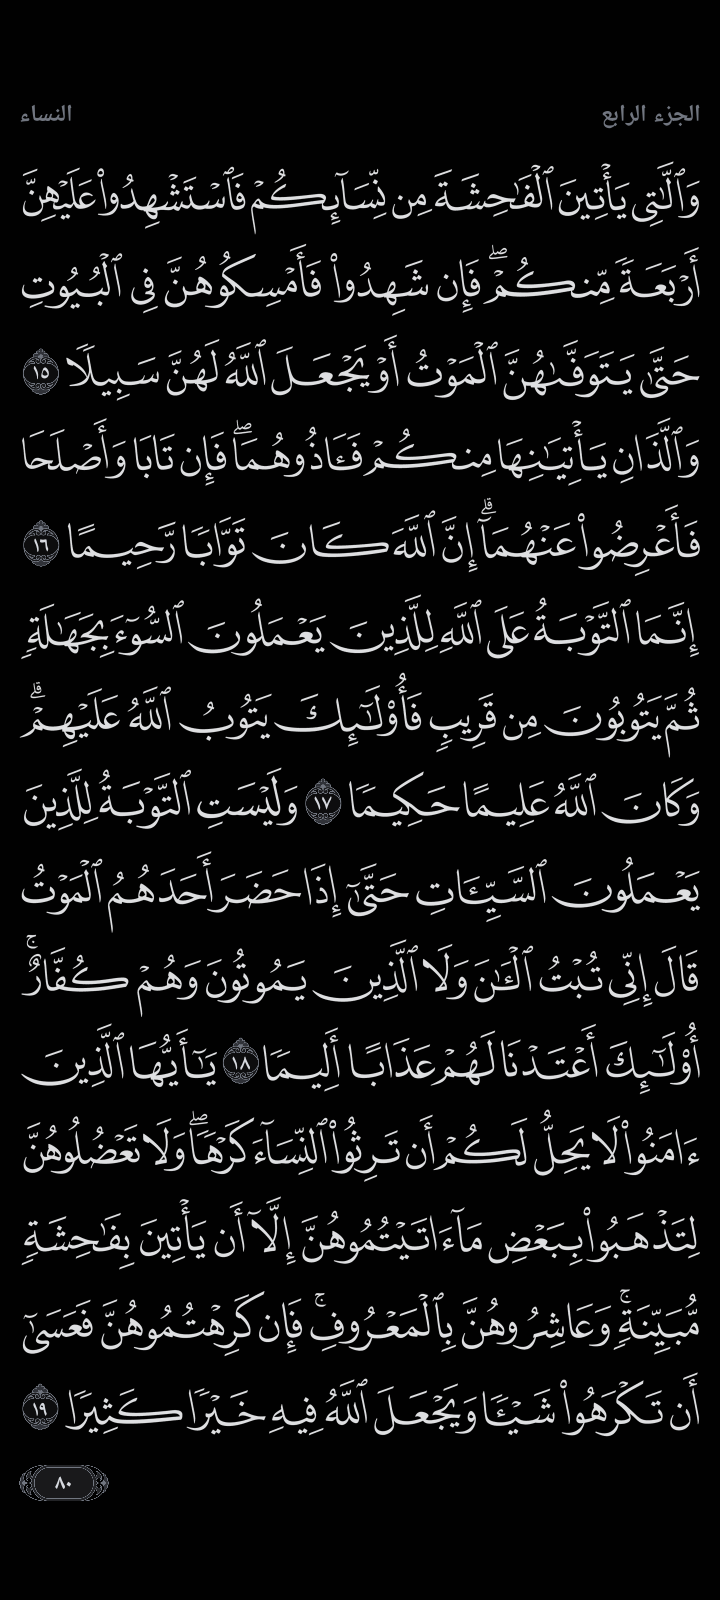 الجزء الرابع
النساء
وَٱلَّٰتِى يَأْتِينَ ٱلْفَٰحِشَةَ مِن نِّسَآئِكُمْ فَٱسْتَشْهِدُوا۟ عَلَيْهِنَّ
أَرْبَعَةً مِّنكُمْ ۖ فَإِن شَهِدُوا۟ فَأَمْسِكُوهُنَّ فِى ٱلْبُيُوتِ
حَتَّىٰ يَتَوَفَّىٰهُنَّ ٱلْمَوْتُ أَوْ يَجْعَلَ ٱللَّهُ لَهُنَّ سَبِيلًا ١٥
وَٱلَّذَانِ يَأْتِيَٰنِهَا مِنكُمْ فَـَٔاذُوهُمَا ۖ فَإِن تَابَا وَأَصْلَحَا
فَأَعْرِضُوا۟ عَنْهُمَآ ۗ إِنَّ ٱللَّهَ كَانَ تَوَّابًا رَّحِيمًا ١٦
إِنَّمَا ٱلتَّوْبَةُ عَلَى ٱللَّهِ لِلَّذِينَ يَعْمَلُونَ ٱلسُّوٓءَ بِجَهَٰلَةٍ
ثُمَّ يَتُوبُونَ مِن قَرِيبٍ فَأُو۟لَٰٓئِكَ يَتُوبُ ٱللَّهُ عَلَيْهِمْ ۗ
وَكَانَ ٱللَّهُ عَلِيمًا حَكِيمًا ١٧ وَلَيْسَتِ ٱلتَّوْبَةُ لِلَّذِينَ
يَعْمَلُونَ ٱلسَّيِّـَٔاتِ حَتَّىٰٓ إِذَا حَضَرَ أَحَدَهُمُ ٱلْمَوْتُ
قَالَ إِنِّى تُبْتُ ٱلْـَٰٔنَ وَلَا ٱلَّذِينَ يَمُوتُونَ وَهُمْ كُفَّارٌ ۚ
أُو۟لَٰٓئِكَ أَعْتَدْنَا لَهُمْ عَذَابًا أَلِيمًا ١٨ يَٰٓأَيُّهَا ٱلَّذِينَ
ءَامَنُوا۟ لَا يَحِلُّ لَكُمْ أَن تَرِثُوا۟ ٱلنِّسَآءَ كَرْهًا ۖ وَلَا تَعْضُلُوهُنَّ
لِتَذْهَبُوا۟ بِبَعْضِ مَآ ءَاتَيْتُمُوهُنَّ إِلَّآ أَن يَأْتِينَ بِفَٰحِشَةٍ
مُّبَيِّنَةٍ ۚ وَعَاشِرُوهُنَّ بِٱلْمَعْرُوفِ ۚ فَإِن كَرِهْتُمُوهُنَّ فَعَسَىٰٓ
أَن تَكْرَهُوا۟ شَيْـًٔا وَيَجْعَلَ ٱللَّهُ فِيهِ خَيْرًا كَثِيرًا ١٩
٨٠